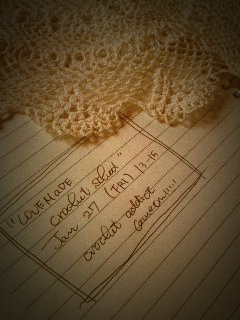 "LOVEMADE
crochet school"
Jan 27 (FRI) 13-15
crochet addict